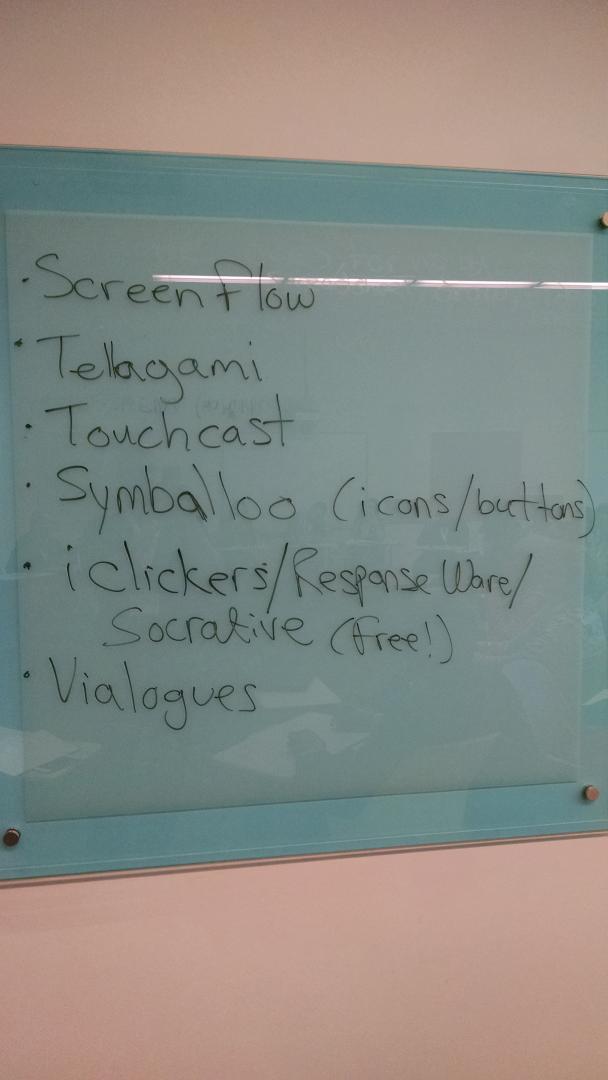 · Screenflow
· Tellagami
· Touchcast
· Symballoo (icons/buttons)
· iclickers/Response Ware/
Socrative (free!)
· Vialogues